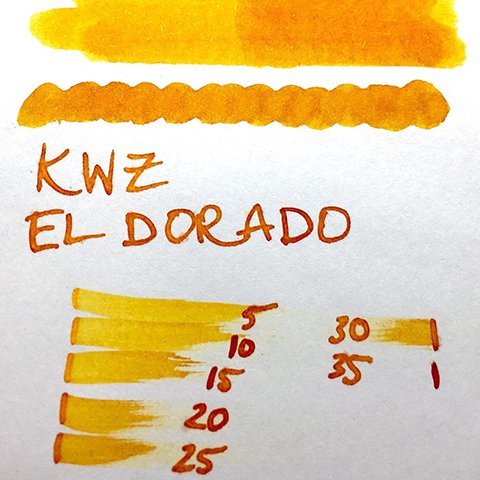 KWZ
EL DORADO
5
10
15
20
25
30
35